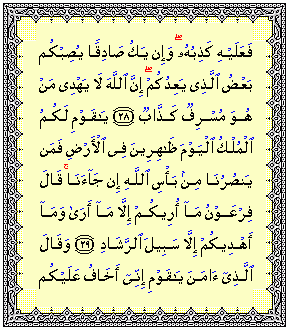 فَعَلَيْهِ كَذِبُهُۥ ۖ وَإِن يَكُ صَادِقًا يُصِبْكُم
بَعْضُ ٱلَّذِى يَعِدُكُمْ ۖ إِنَّ ٱللَّهَ لَا يَهْدِى مَنْ
هُوَ مُسْرِفٌ كَذَّابٌ ﴿٢٨﴾ يَـٰقَوْمِ لَكُمُ
ٱلْمُلْكُ ٱلْيَوْمَ ظَـٰهِرِينَ فِى ٱلْأَرْضِ فَمَن
يَنصُرُنَا مِنۢ بَأْسِ ٱللَّهِ إِن جَآءَنَا ۚ قَالَ
فِرْعَوْنُ مَآ أُرِيكُمْ إِلَّا مَآ أَرَىٰ وَمَآ
أَهْدِيكُمْ إِلَّا سَبِيلَ ٱلرَّشَادِ ﴿٢٩﴾ وَقَالَ
ٱلَّذِىٓ ءَامَنَ يَـٰقَوْمِ إِنِّىٓ أَخَافُ عَلَيْكُم